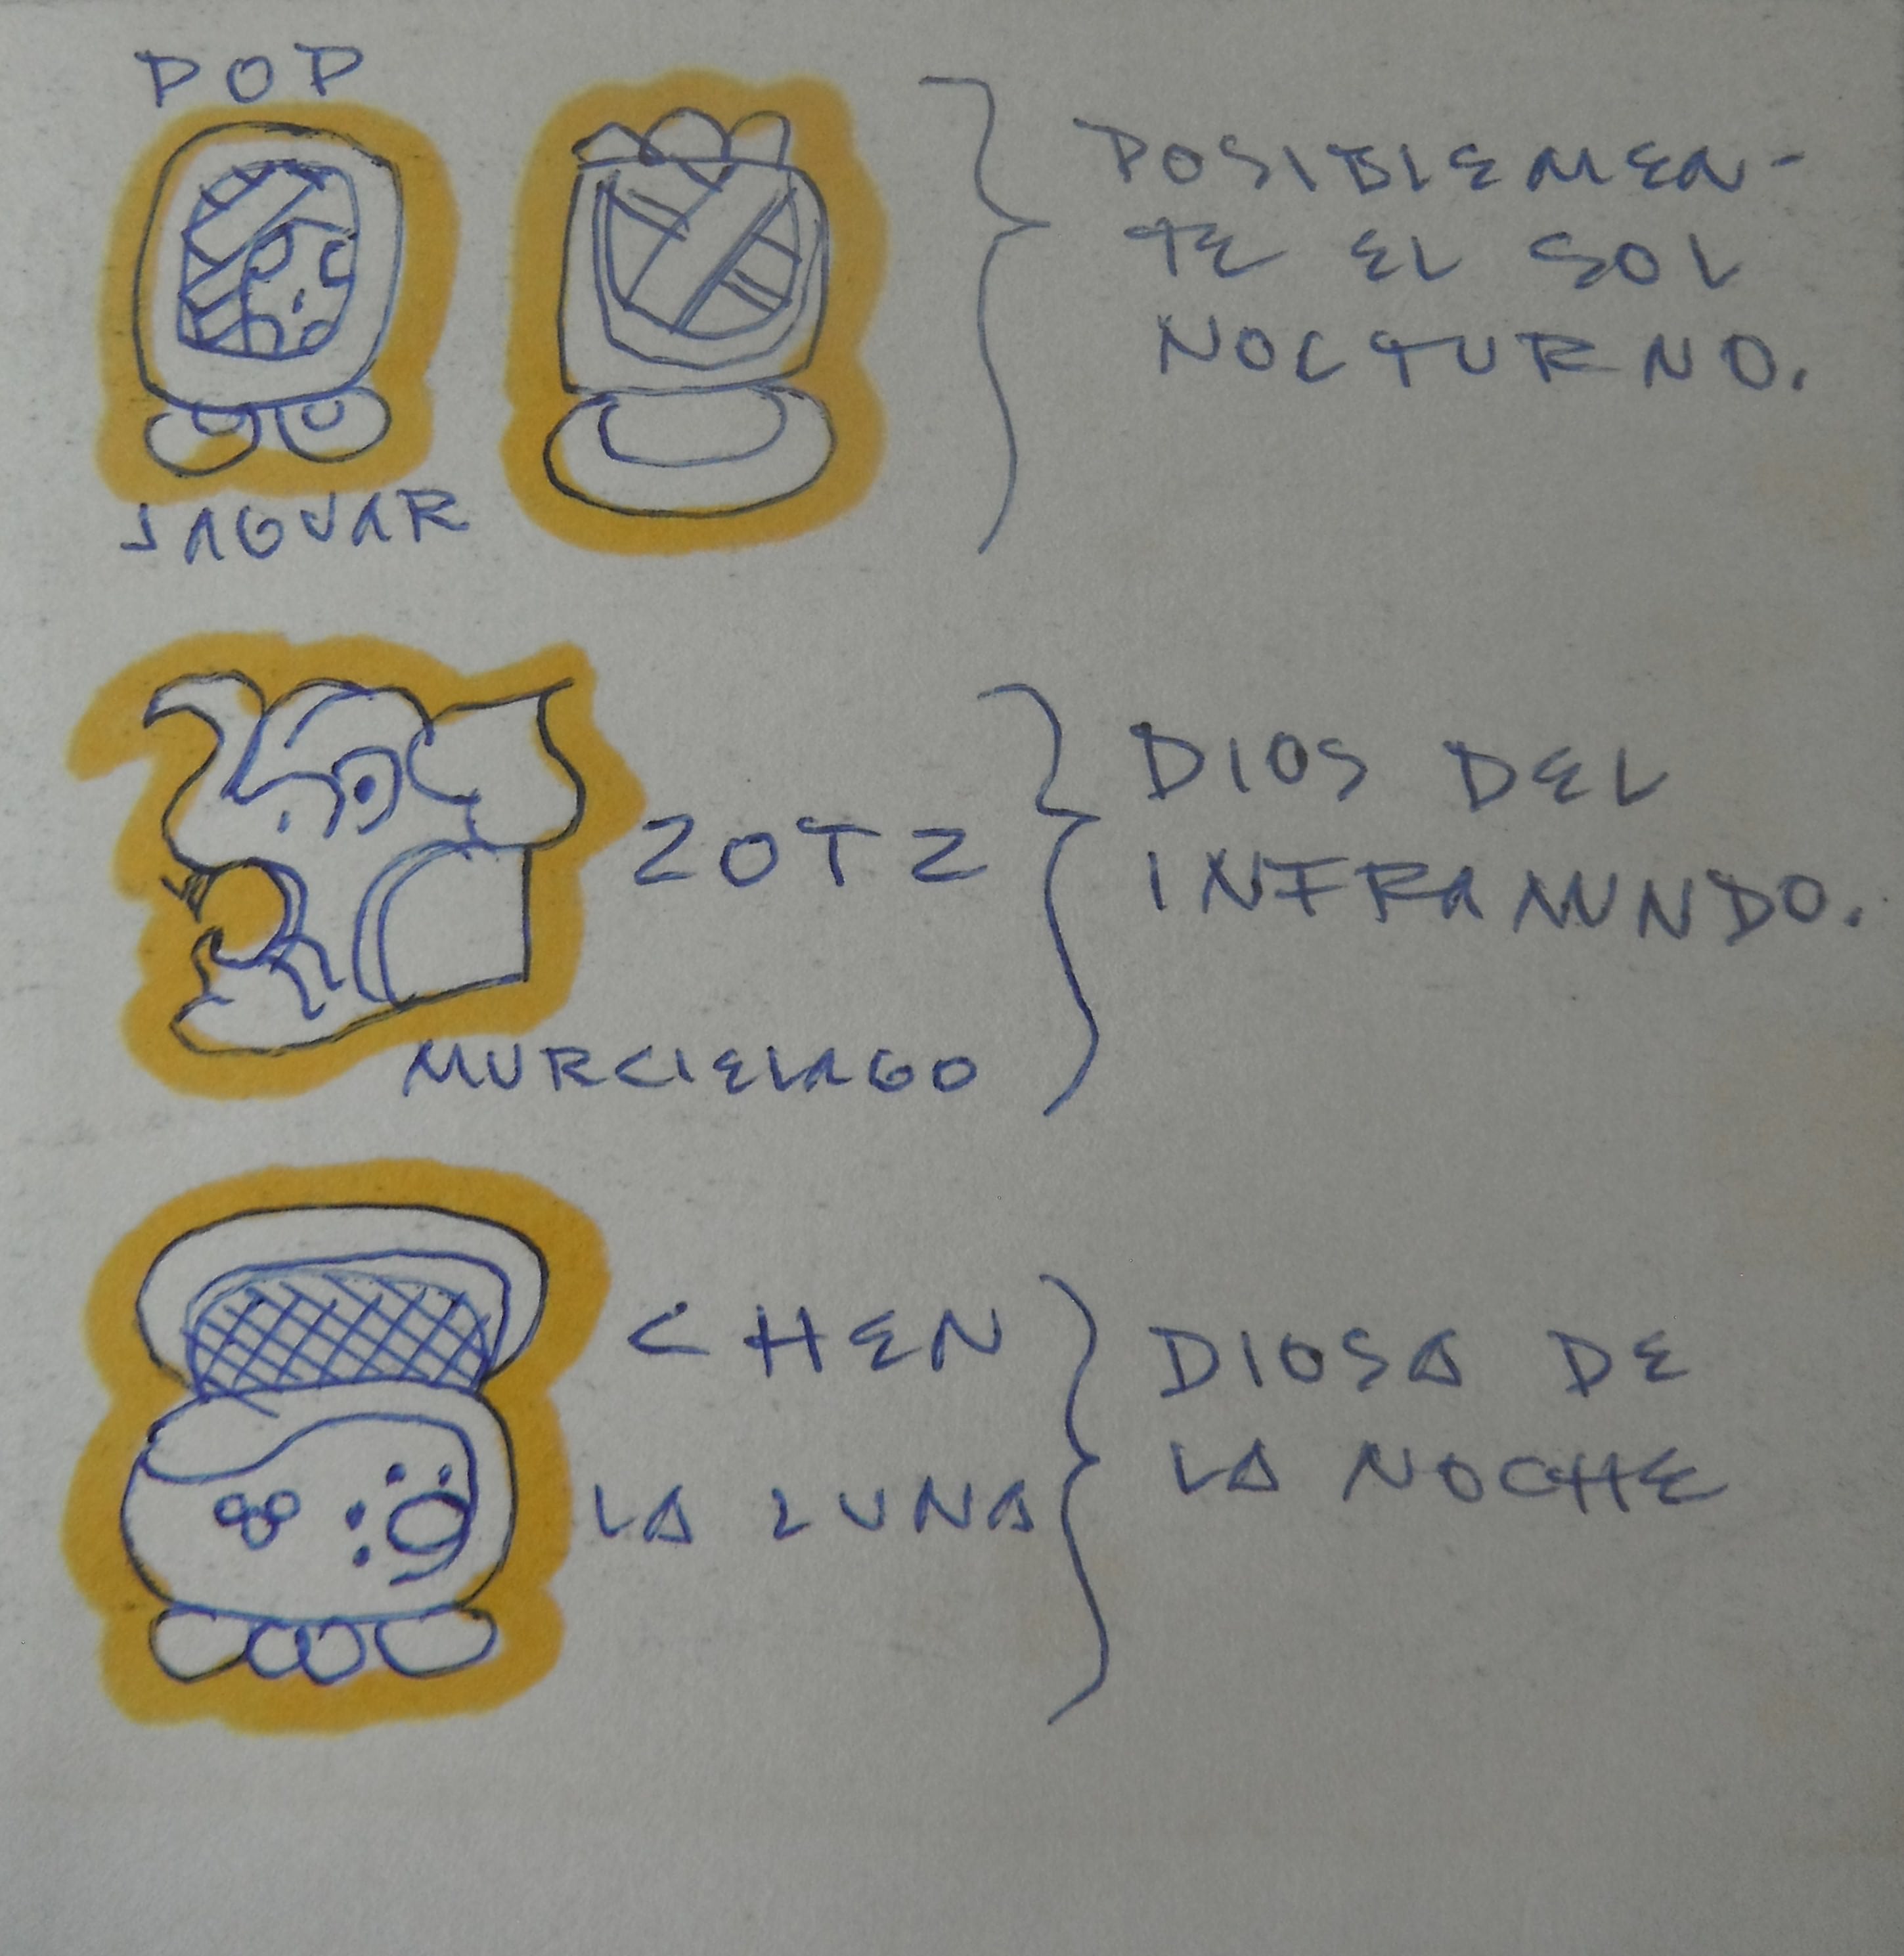 POP
JAGUAR
POSIBLEMEN-
TE EL SOL
NOCTURNO.
ZOTZ
MURCIELAGO
DIOS DEL
INFRAMUNDO.
CHEN
LA LUNA
DIOSA DE
LA NOCHE